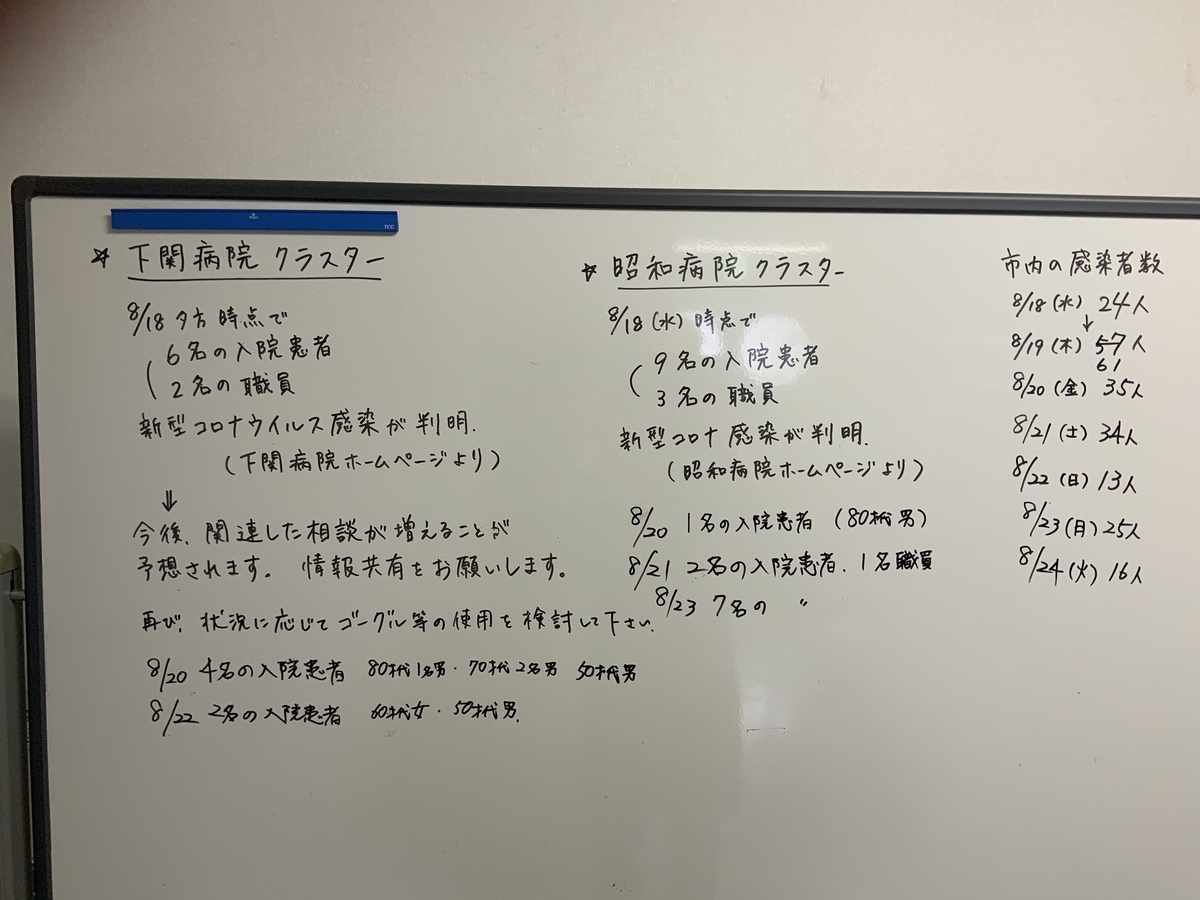 TCC
☆ 下関病院 クラスター
8/18 夕方 時点で
6名の入院患者
2名の職員
新型コロナウイルス感染が判明.
(下関病院ホームページより)
⇓
今後、関連した相談が増えることが
予想されます。 情報共有をお願いします。
再び、状況に応じてゴーグル等の使用を検討して下さい.
8/20 4名の入院患者 80才代1名男・70才代2名男 50才代男
8/22 2名の入院患者 60才代女・50才代男.
☆ 昭和病院 クラスター
8/18(水) 時点で
9名の入院患者
3名の職員
新型コロナ感染が判明.
(昭和病院ホームページより)
8/20 1名の入院患者 (80才代男)
8/21 2名の入院患者. 1名職員
8/23 7名の 〃
市内の感染者数
8/18(水) 24人
↓
8/19(木) 57人
61
8/20(金) 35人
8/21(土) 34人
8/22(日) 13人
8/23(月) 25人
8/24(火) 16人